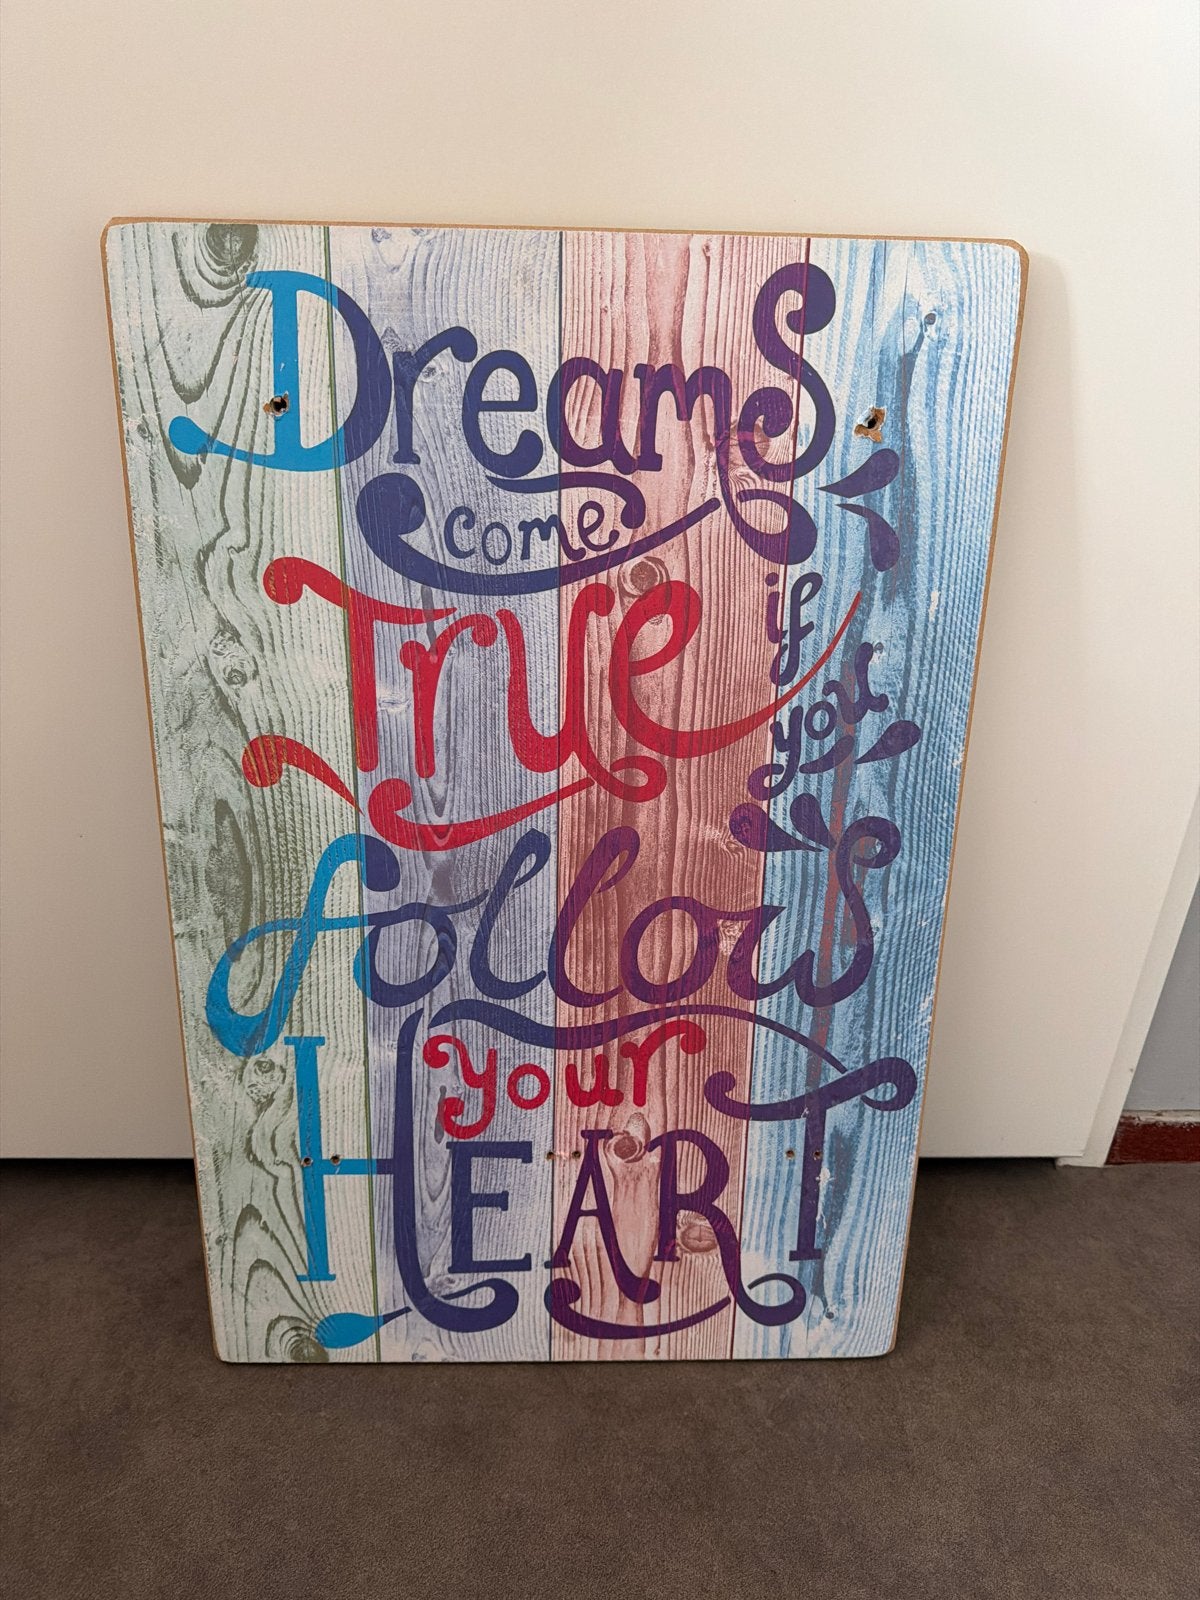 Dreams
come
True if
you
follow
your
HEART